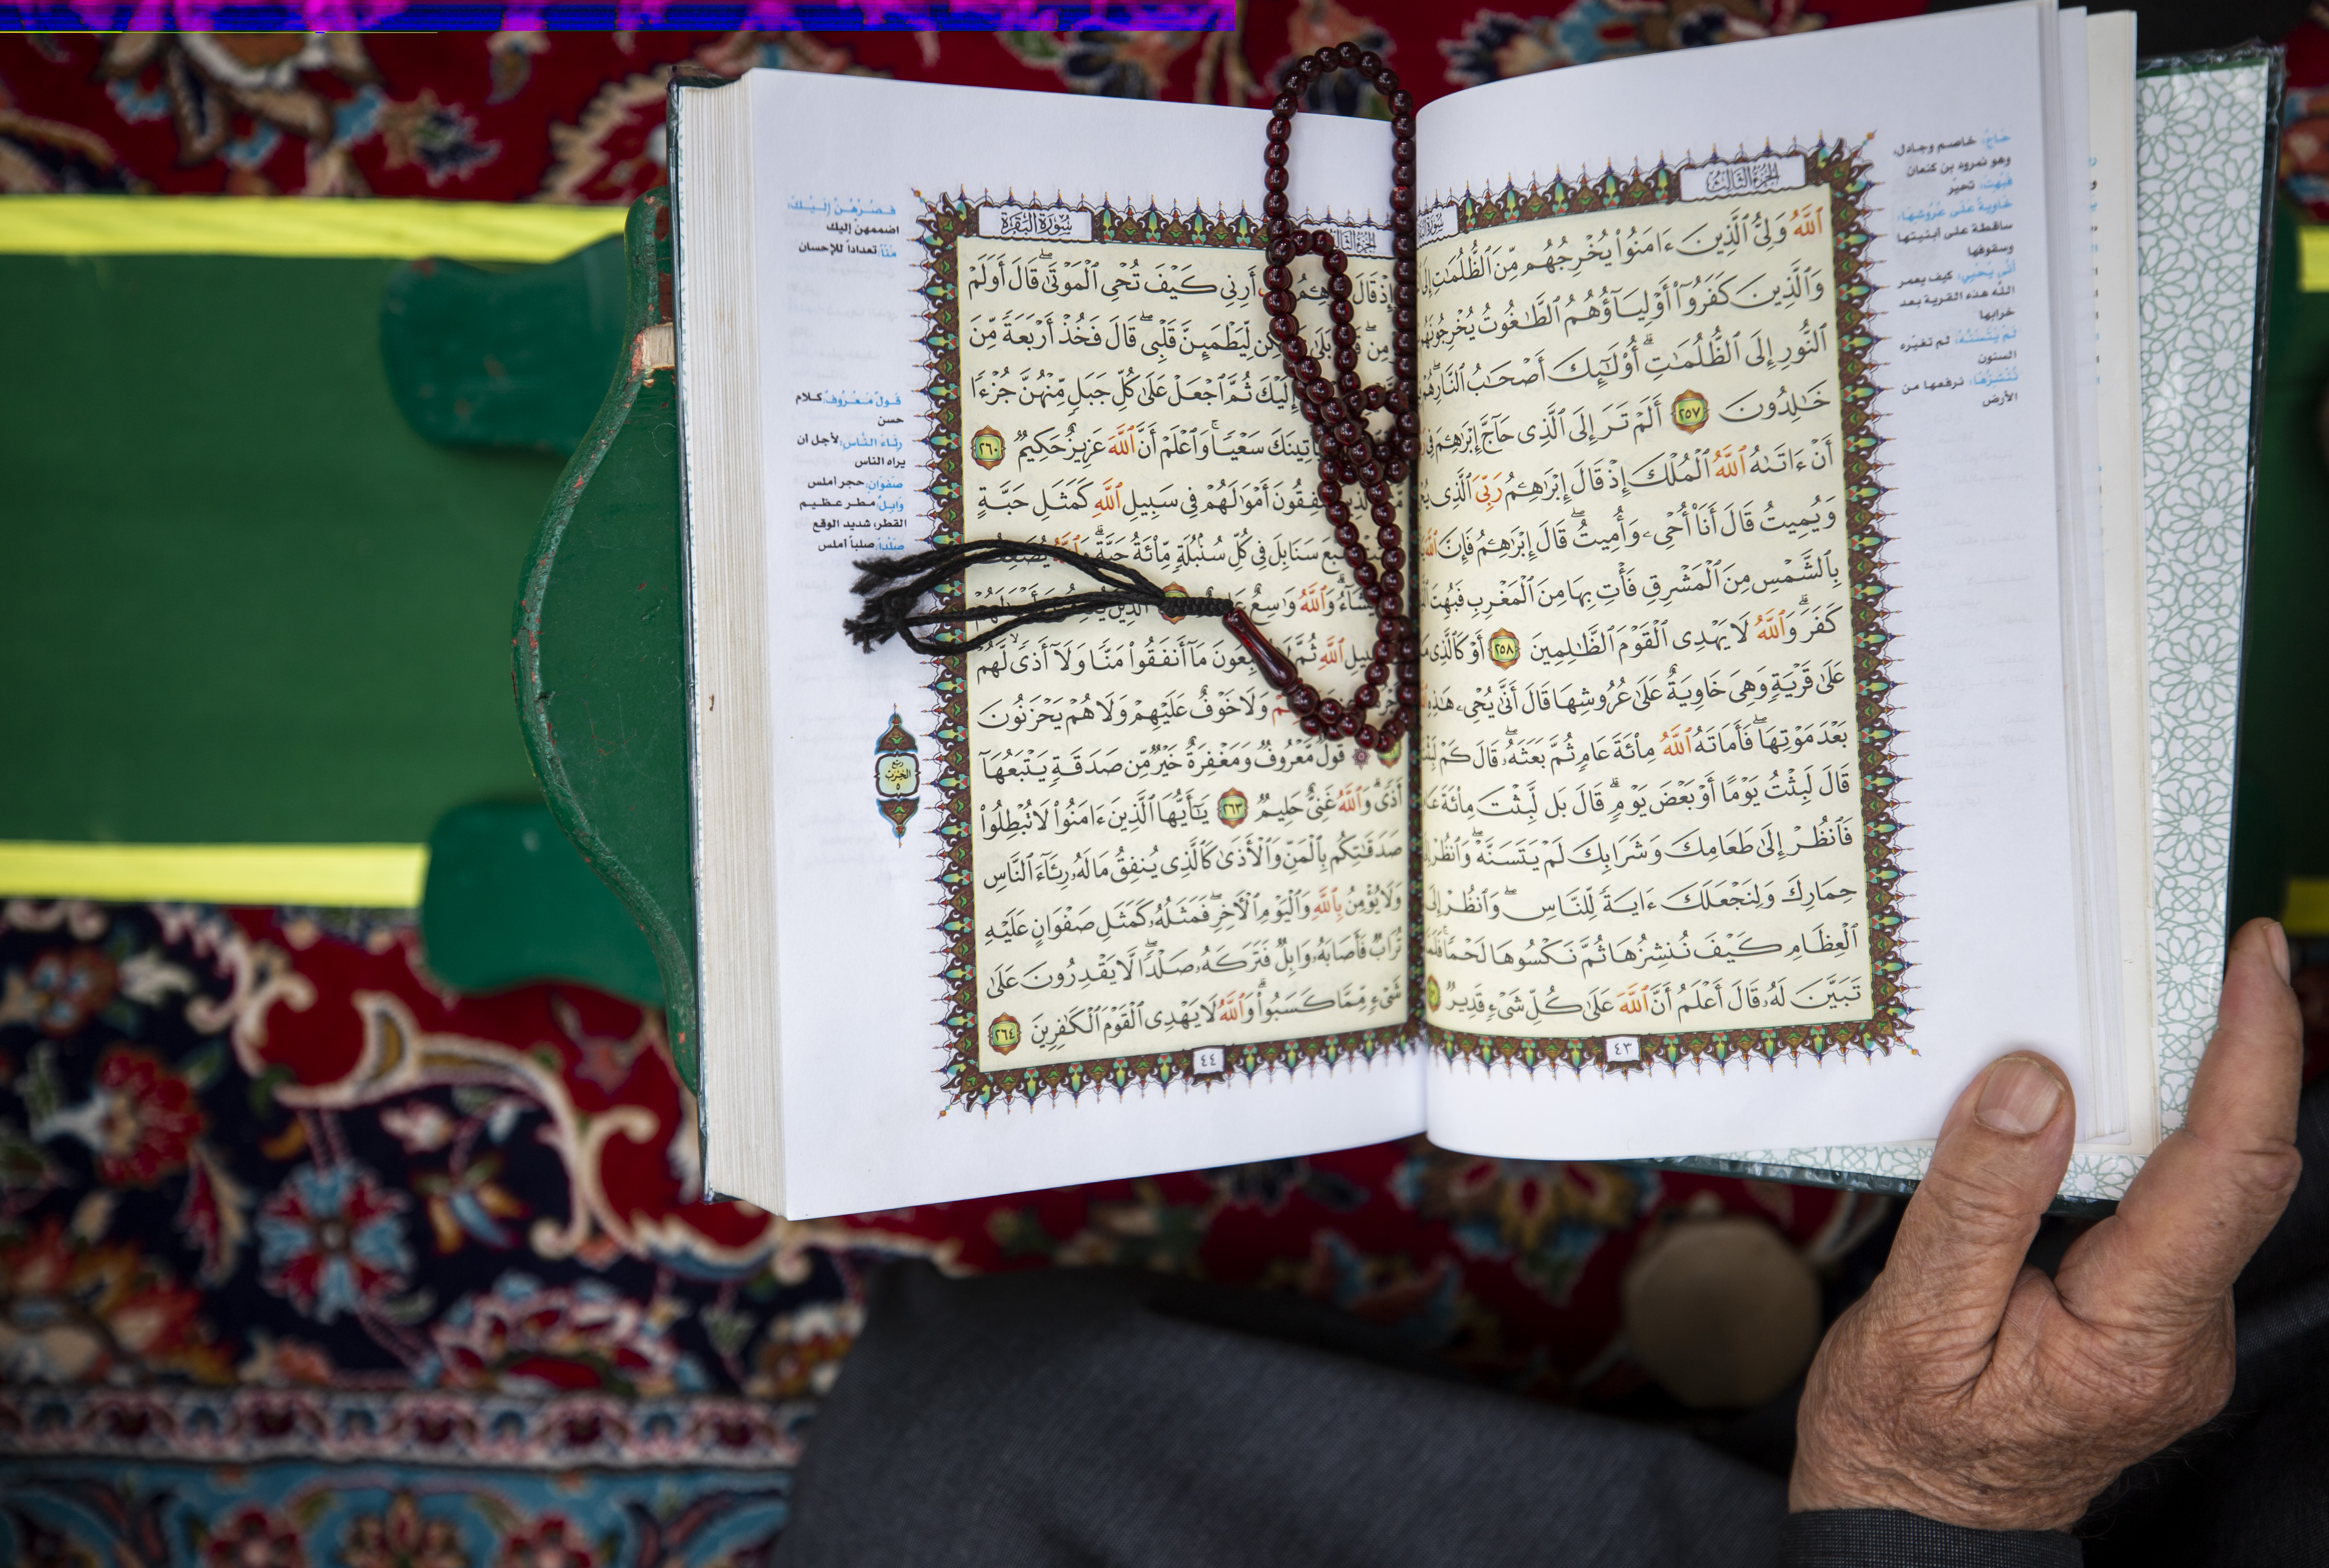 الجزء الثالث
ٱللَّهُ وَلِىُّ ٱلَّذِينَ ءَامَنُوا۟ يُخْرِجُهُم مِّنَ ٱلظُّلُمَٰتِ إِلَى
وَٱلَّذِينَ كَفَرُوٓا۟ أَوْلِيَآؤُهُمُ ٱلطَّٰغُوتُ يُخْرِجُونَهُم
ٱلنُّورِ إِلَى ٱلظُّلُمَٰتِ ۗ أُو۟لَٰٓئِكَ أَصْحَٰبُ ٱلنَّارِ ۖ هُمْ
خَٰلِدُونَ ٢٥٧ أَلَمْ تَرَ إِلَى ٱلَّذِى حَآجَّ إِبْرَٰهِۦمَ فِى
أَنْ ءَاتَىٰهُ ٱللَّهُ ٱلْمُلْكَ إِذْ قَالَ إِبْرَٰهِۦمُ رَبِّىَ ٱلَّذِى
وَيُمِيتُ قَالَ أَنَا۠ أُحْىِۦ وَأُمِيتُ ۖ قَالَ إِبْرَٰهِۦمُ فَإِنَّ ٱللَّهَ
بِٱلشَّمْسِ مِنَ ٱلْمَشْرِقِ فَأْتِ بِهَا مِنَ ٱلْمَغْرِبِ فَبُهِتَ
كَفَرَ ۗ وَٱللَّهُ لَا يَهْدِى ٱلْقَوْمَ ٱلظَّٰلِمِينَ ٢٥٨ أَوْ كَٱلَّذِى
عَلَىٰ قَرْيَةٍ وَهِىَ خَاوِيَةٌ عَلَىٰ عُرُوشِهَا قَالَ أَنَّىٰ يُحْىِۦ هَٰذِهِ
بَعْدَ مَوْتِهَا ۖ فَأَمَاتَهُ ٱللَّهُ مِا۟ئَةَ عَامٍ ثُمَّ بَعَثَهُۥ ۖ قَالَ كَمْ
قَالَ لَبِثْتُ يَوْمًا أَوْ بَعْضَ يَوْمٍ ۖ قَالَ بَل لَّبِثْتَ مِا۟ئَةَ
فَٱنظُرْ إِلَىٰ طَعَامِكَ وَشَرَابِكَ لَمْ يَتَسَنَّهْ ۖ وَٱنظُرْ
حِمَارِكَ وَلِنَجْعَلَكَ ءَايَةً لِّلنَّاسِ ۖ وَٱنظُرْ إِلَى
ٱلْعِظَامِ كَيْفَ نُنشِزُهَا ثُمَّ نَكْسُوهَا لَحْمًا ۚ
تَبَيَّنَ لَهُۥ قَالَ أَعْلَمُ أَنَّ ٱللَّهَ عَلَىٰ كُلِّ شَىْءٍ قَدِيرٌ
٤٣
حَاجَّ: خاصم وجادل،
وهو نمرود بن كنعان
فَبُهِتَ: تحير
خَاوِيَةٌ عَلَى عُرُوشِهَا:
ساقطة على أبنيتها
وسقوفها
أَنَّى يُحْيِي: كيف يعمر
الله هذه القرية بعد
خرابها
لَمْ يَتَسَنَّهْ: لم تغيره
السنون
نُنْشِزُهَا: نرفعها من
الأرض
سورة البقرة
إِذْ قَالَ أَرِنِى كَيْفَ تُحْىِ ٱلْمَوْتَىٰ ۖ قَالَ أَوَلَمْ
بَلَىٰ لِّيَطْمَئِنَّ قَلْبِى ۖ قَالَ فَخُذْ أَرْبَعَةً مِّنَ
إِلَيْكَ ثُمَّ ٱجْعَلْ عَلَىٰ كُلِّ جَبَلٍ مِّنْهُنَّ جُزْءًا
يَأْتِينَكَ سَعْيًا ۚ وَٱعْلَمْ أَنَّ ٱللَّهَ عَزِيزٌ حَكِيمٌ ٢٦٠
أَمْوَٰلَهُمْ فِى سَبِيلِ ٱللَّهِ كَمَثَلِ حَبَّةٍ
سَنَابِلَ فِى كُلِّ سُنۢبُلَةٍ مِّا۟ئَةُ حَبَّةٍ ۗ
يَشَآءُ ۗ وَٱللَّهُ وَٰسِعٌ
ٱللَّهِ ثُمَّ مَآ أَنفَقُوا۟ مَنًّا وَلَآ أَذًى ۙ لَّهُمْ
وَلَا خَوْفٌ عَلَيْهِمْ وَلَا هُمْ يَحْزَنُونَ
قَوْلٌ مَّعْرُوفٌ وَمَغْفِرَةٌ خَيْرٌ مِّن صَدَقَةٍ يَتْبَعُهَآ
أَذًى ۗ وَٱللَّهُ غَنِىٌّ حَلِيمٌ ٢٦٣ يَٰٓأَيُّهَا ٱلَّذِينَ ءَامَنُوا۟ لَا تُبْطِلُوا۟
صَدَقَٰتِكُم بِٱلْمَنِّ وَٱلْأَذَىٰ كَٱلَّذِى يُنفِقُ مَالَهُۥ رِئَآءَ ٱلنَّاسِ
وَلَا يُؤْمِنُ بِٱللَّهِ وَٱلْيَوْمِ ٱلْءَاخِرِ ۖ فَمَثَلُهُۥ كَمَثَلِ صَفْوَانٍ عَلَيْهِ
تُرَابٌ فَأَصَابَهُۥ وَابِلٌ فَتَرَكَهُۥ صَلْدًا ۖ لَّا يَقْدِرُونَ عَلَىٰ
شَىْءٍ مِّمَّا كَسَبُوا۟ ۗ وَٱللَّهُ لَا يَهْدِى ٱلْقَوْمَ ٱلْكَٰفِرِينَ ٢٦٤
٤٤
فَصُرْهُنَّ إِلَيْكَ:
اضممهنّ إليك
مَنّاً: تعداداً للإحسان
قَوْلٌ مَعْرُوفٌ: كلام
حسن
رِئَاءَ النَّاسِ: لأجل أن
يراه الناس
صَفْوَانٍ: حجر أملس
وَابِلٌ: مطر عظيم
القطر، شديد الوقع
صَلْداً: صلباً أملس
ربع
الحزب
٥